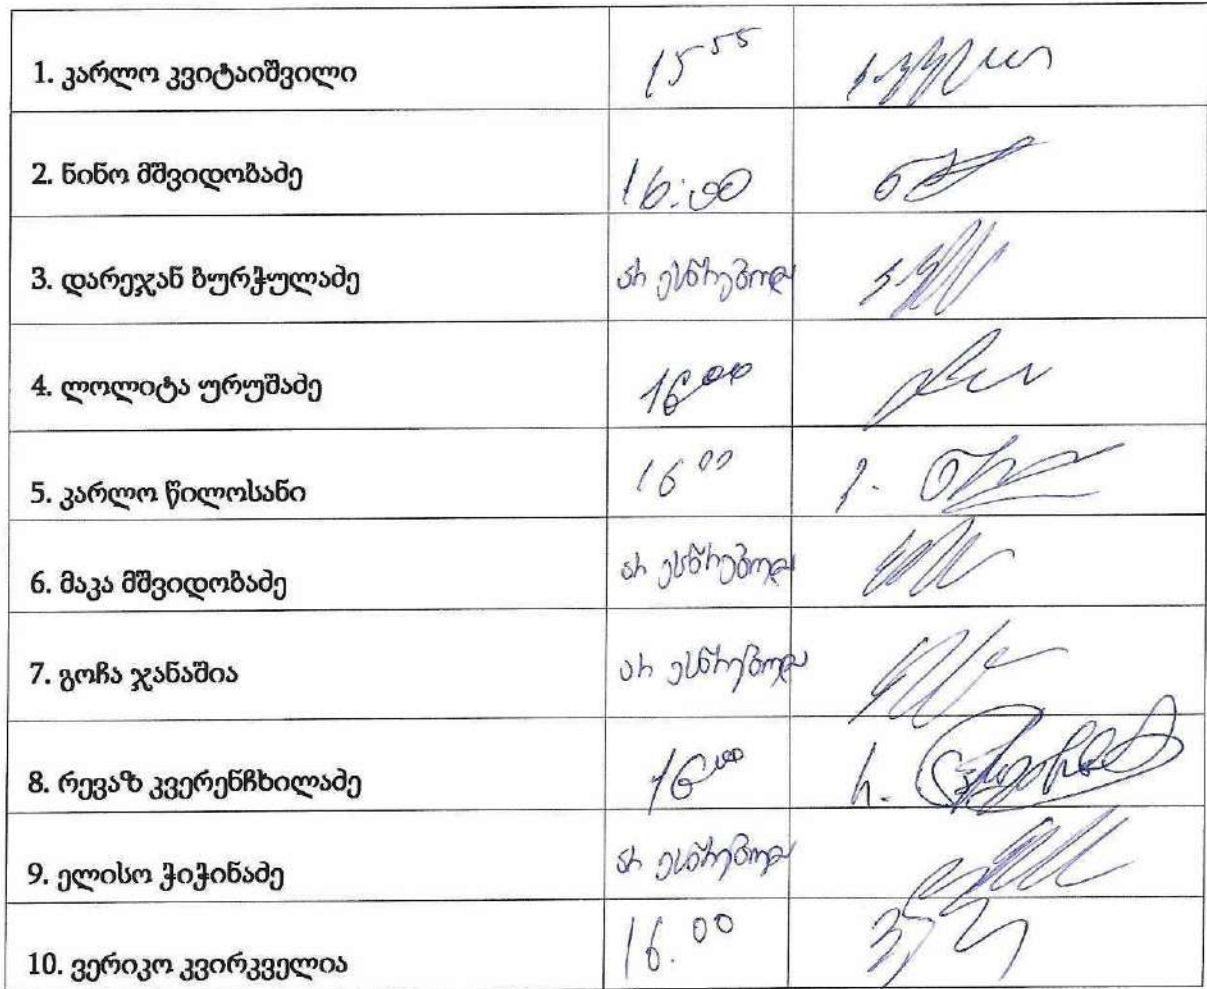 1. კარლო კვიტაიშვილი 15 55
2. ნინო მშვიდობაძე 16:00
3. დარეჯან ბურჭულაძე არ ესწრებოდა
4. ლოლიტა ურუშაძე 16 00
5. კარლო წილოსანი 16 00
6. მაკა მშვიდობაძე არ ესწრებოდა
7. გოჩა ჯანაშია არ ესწრებოდა
8. რევაზ კვერენჩხილაძე 16 00
9. ელისო ჭიჭინაძე არ ესწრებოდა
10. ვერიკო კვირკველია 16.00